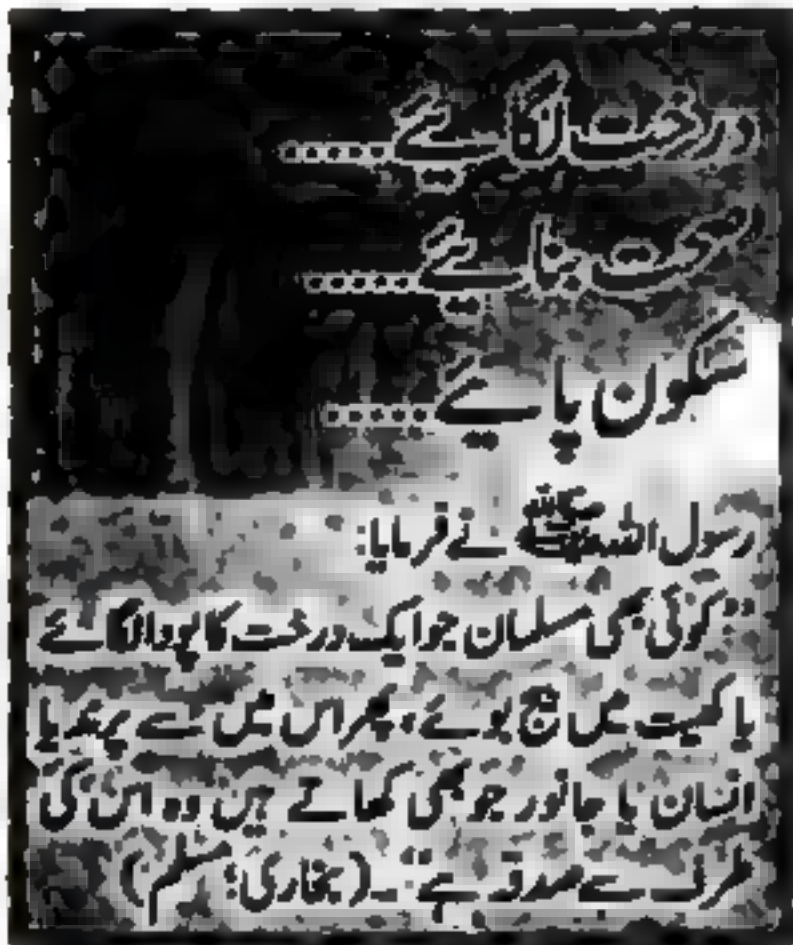 درخت لگائیے.....
صحت بنائیے.....
سکون پائیے.....
رسول اللہ ﷺ نے فرمایا:
"کوئی بھی مسلمان جو ایک درخت کا پودا لگائے
یا کھیت میں بیج بوئے، پھر اس میں سے پرند یا
انسان یا جانور جو بھی کھاتے ہیں وہ اس کی
طرف سے صدقہ ہے"۔ (بخاری؛ مسلم)